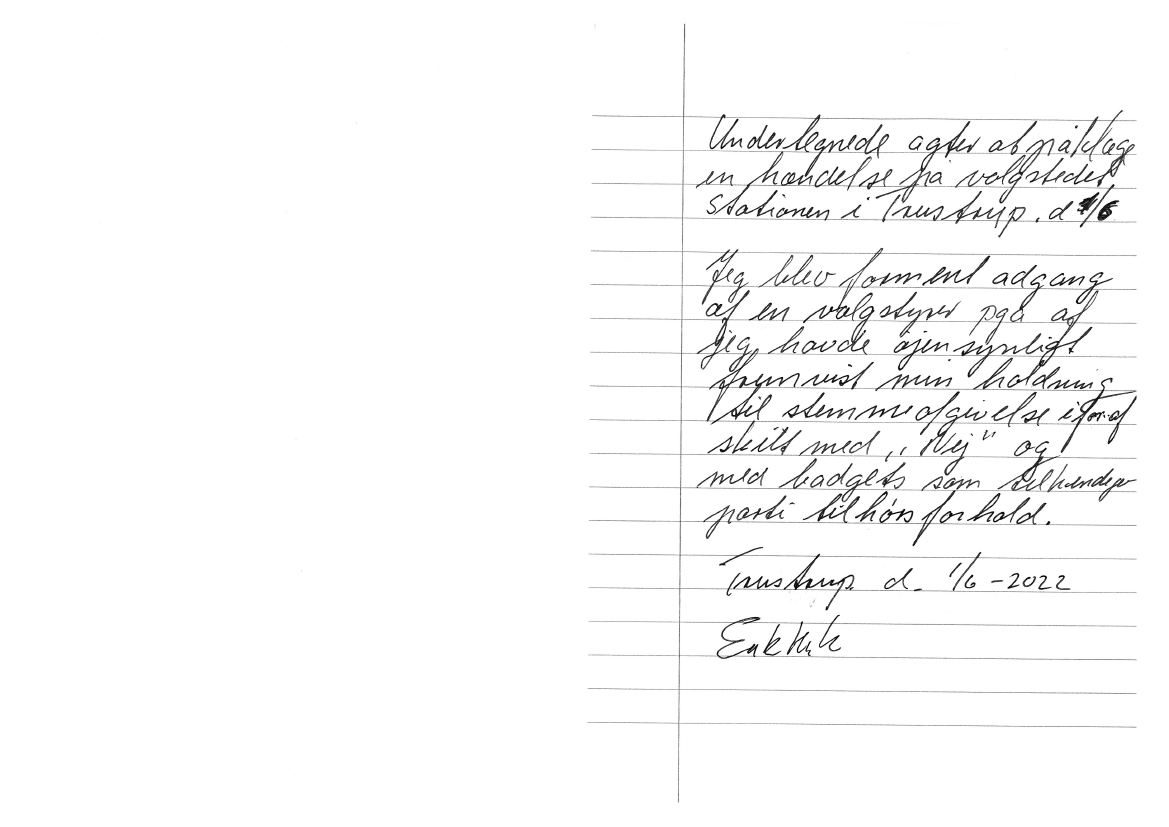 Undertegnede agter at påklage
en hændelse på valgstedet
Stationen i Trustrup. d 1/6
Jeg blev forment adgang
af en valgstyrer pga at
jeg havde øjensynligt
fremvist min holdning
til stemmeafgivelse i form af
skilt med ,,Nej" og
med badgets som tilkendegav
parti tilhørsforhold.
Trustrup d. 1/6 - 2022